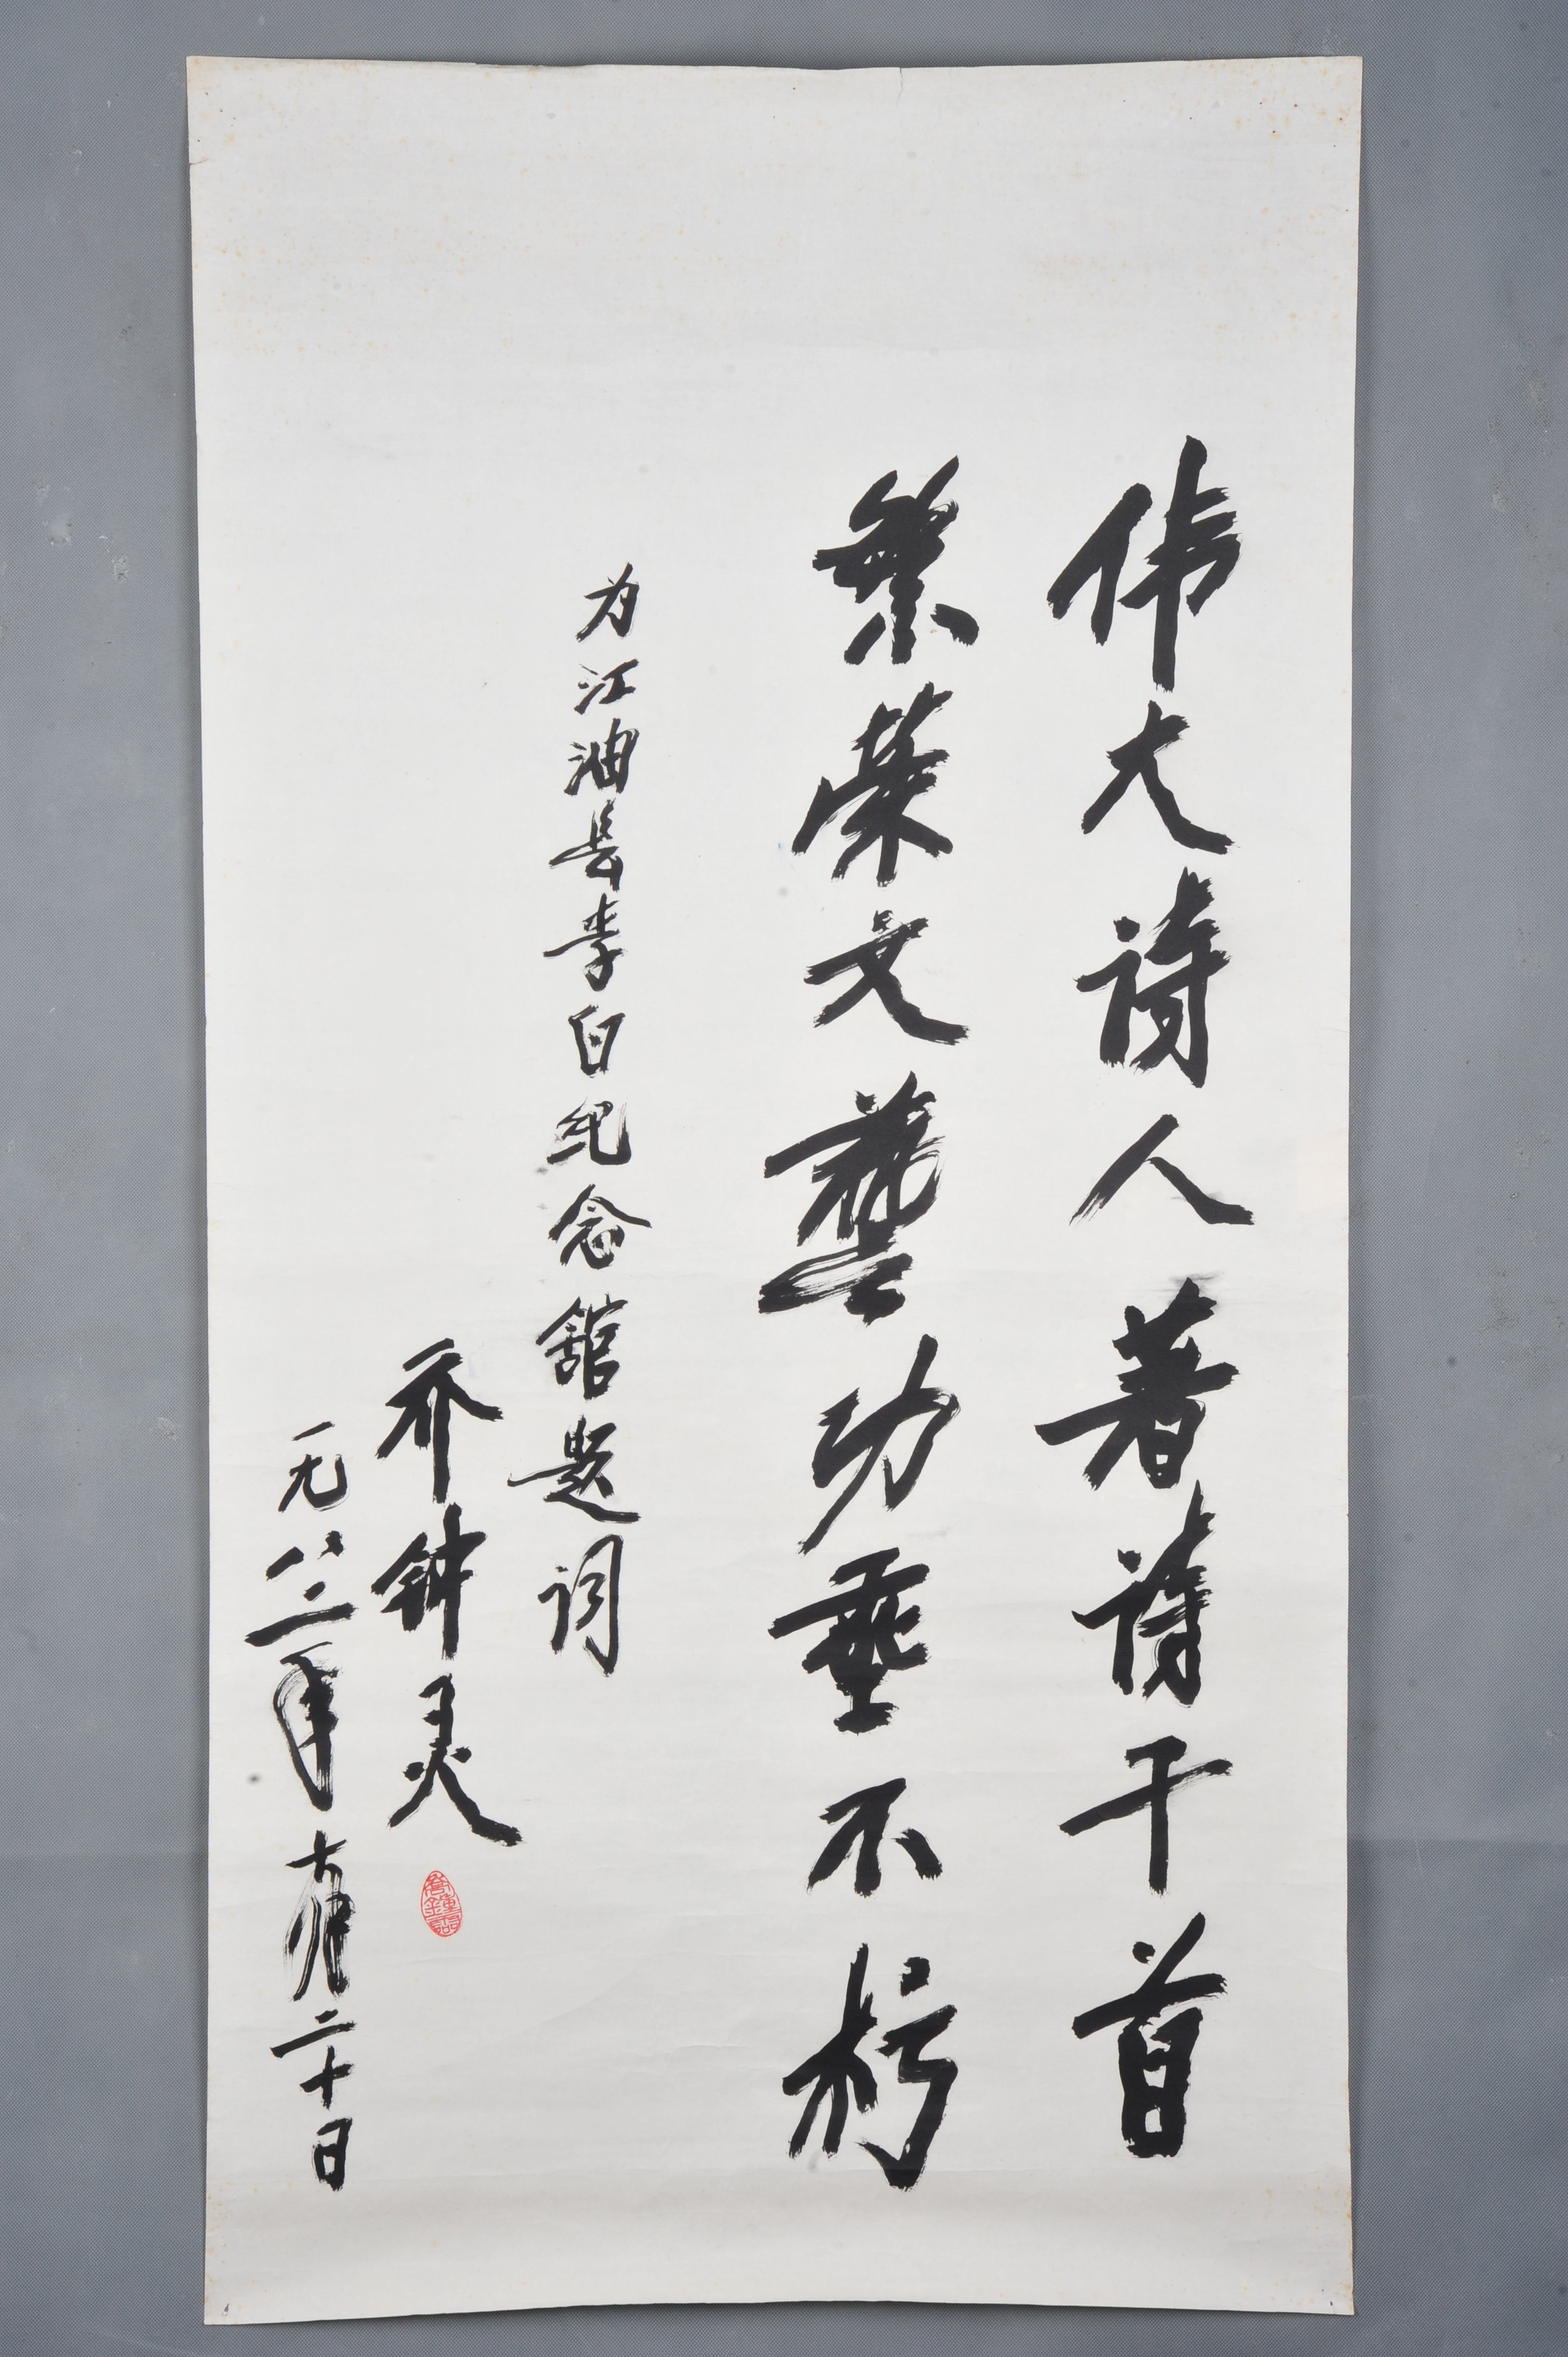 伟大诗人著诗千首
繁荣文藝功垂不朽
为江油县李白纪念舘题词
乔钟灵
一九八二年十月二十日